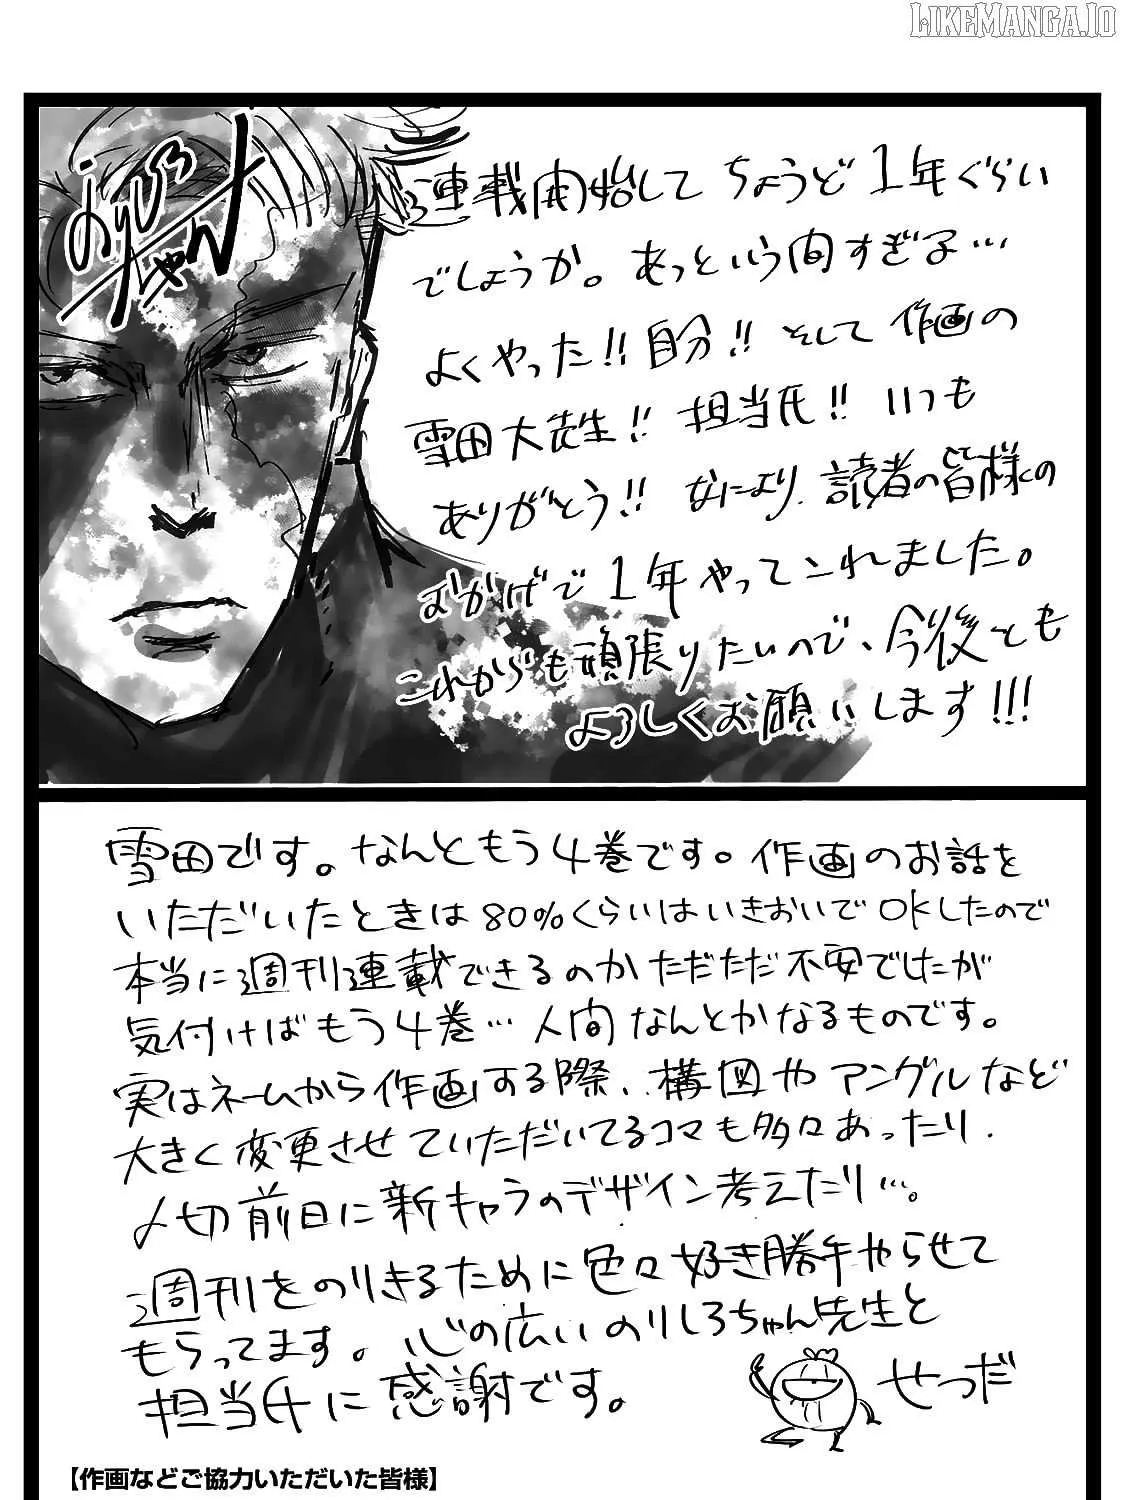 LIKEMANGA.IO
のりしろちゃん
連載開始してちょうど1年ぐらい
でしょうか。あっという間すぎる…
よくやった!!自分!!そして作画の
雪田大先生!!担当氏!!いつも
ありがとう!!なにより、読者の皆様の
おかげで1年やってこれました。
これからも頑張りたいので、今後とも
よろしくお願いします!!!
雪田です。なんともう4巻です。作画のお話を
いただいたときは80%くらいはいきおいでOKしたので
本当に週刊連載できるのかただただ不安でしたが
気付けばもう4巻…人間なんとかなるものです。
実はネームから作画する際、構図やアングルなど
大きく変更させていただいてるコマも多々あったり、
〆切前日に新キャラのデザイン考えたり…。
週刊をのりきるために色々好き勝手やらせて
もらってます。心の広いのりしろちゃん先生と
担当氏に感謝です。
せつだ
【作画などご協力いただいた皆様】